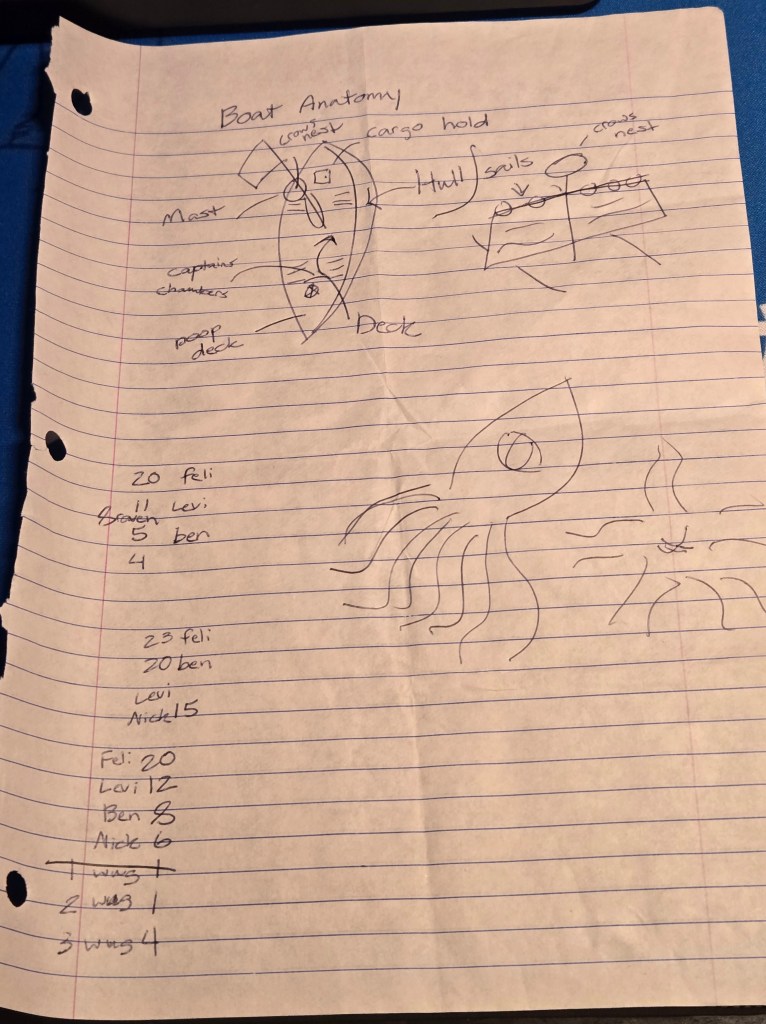 Boat Anatomy
crows
nest
cargo hold
crows
nest
Hull
sails
Mast
captains
chambers
poop
deck
Deck
20 feli
11 Levi
5 ben
4
23 feli
20 ben
Levi
Nick 15
Feli 20
Levi 12
Ben 8
Nick 6
1 wug 1
2 wug 1
3 wug 4